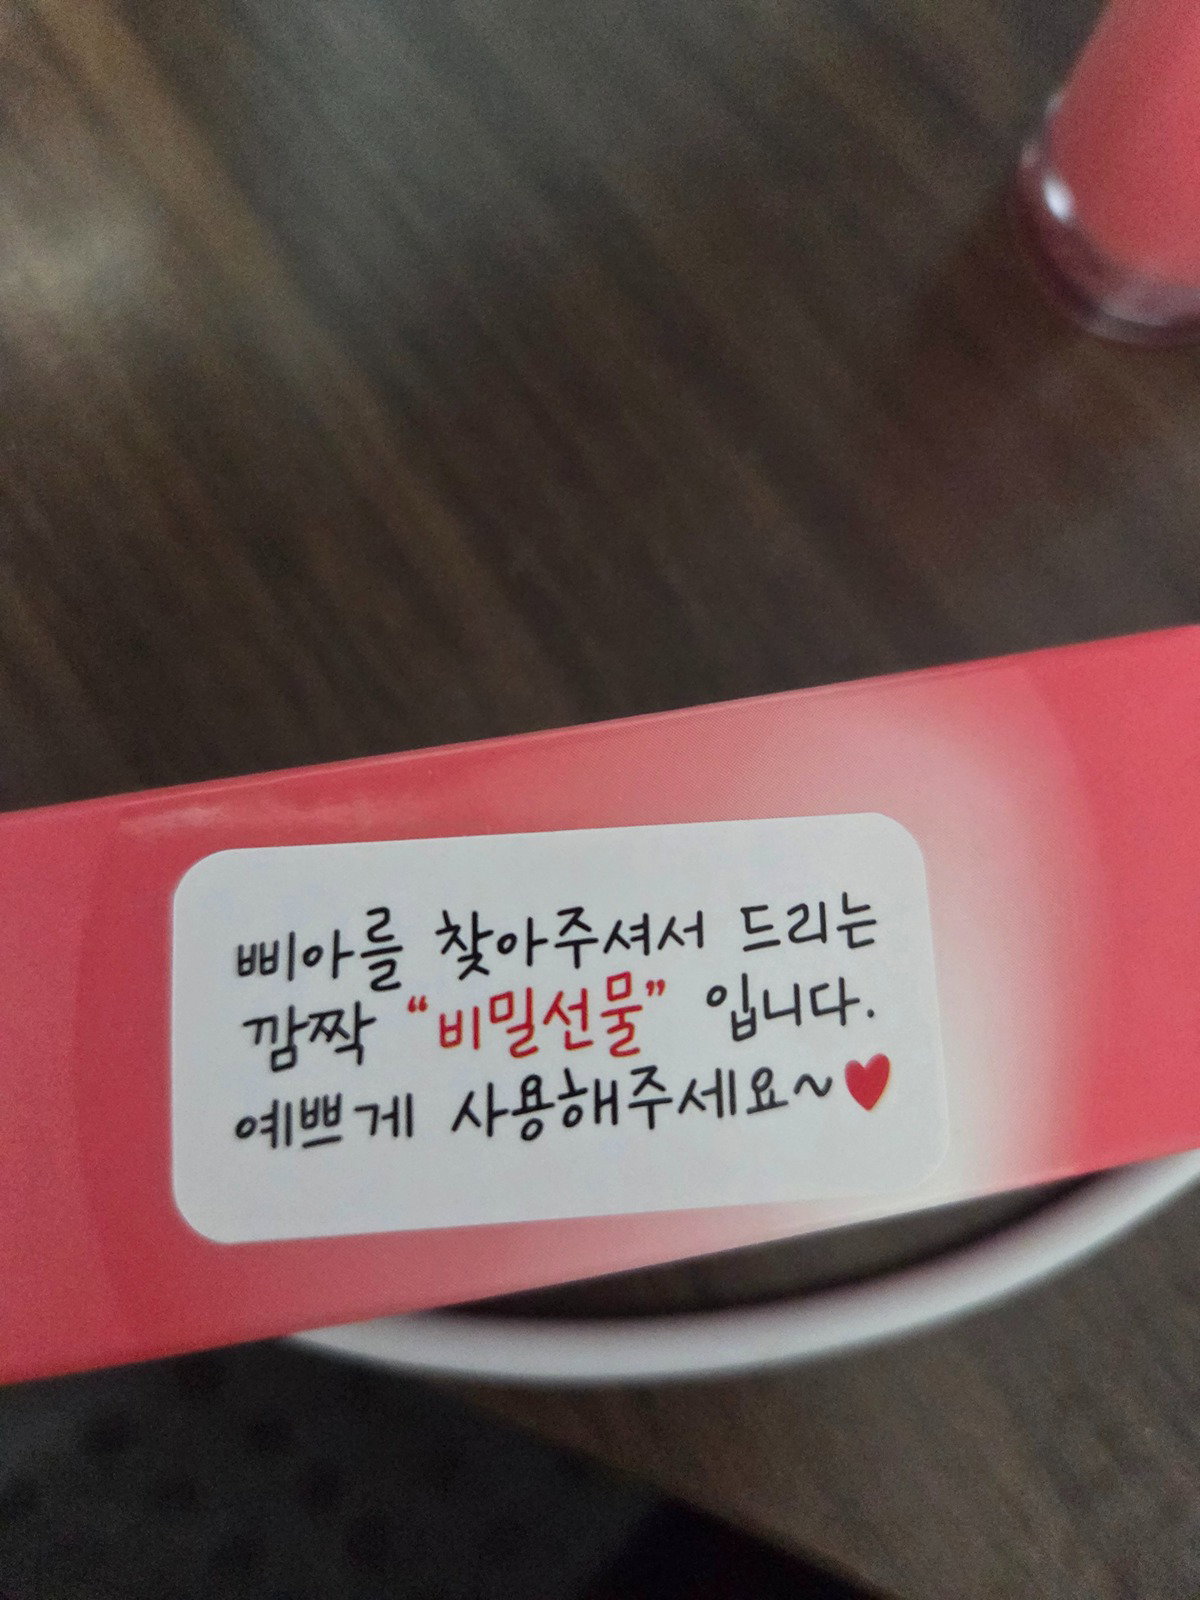 삐아를 찾아주셔서 드리는
깜짝 "비밀선물" 입니다.
예쁘게 사용해주세요~♥